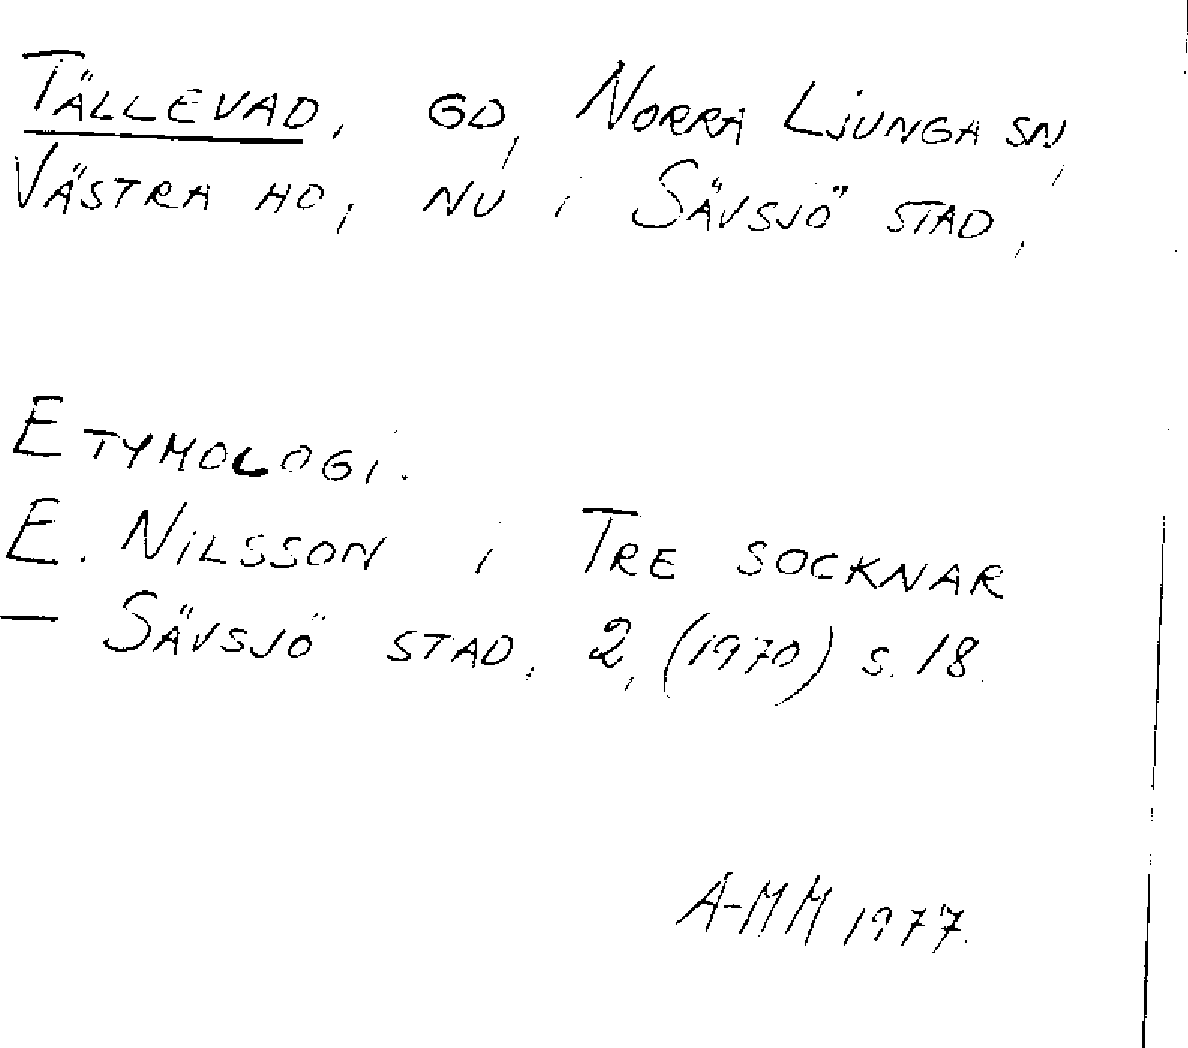 TÄLLEVAD, GD, NORRA LJUNGA SN,
VÄSTRA HD, NU i SÄVSJÖ STAD,
ETYMOLOGI.
E. NILSSON i TRE SOCKNAR
— SÄVSJÖ STAD, 2, (1970) s. 18.
A-MM 1977.